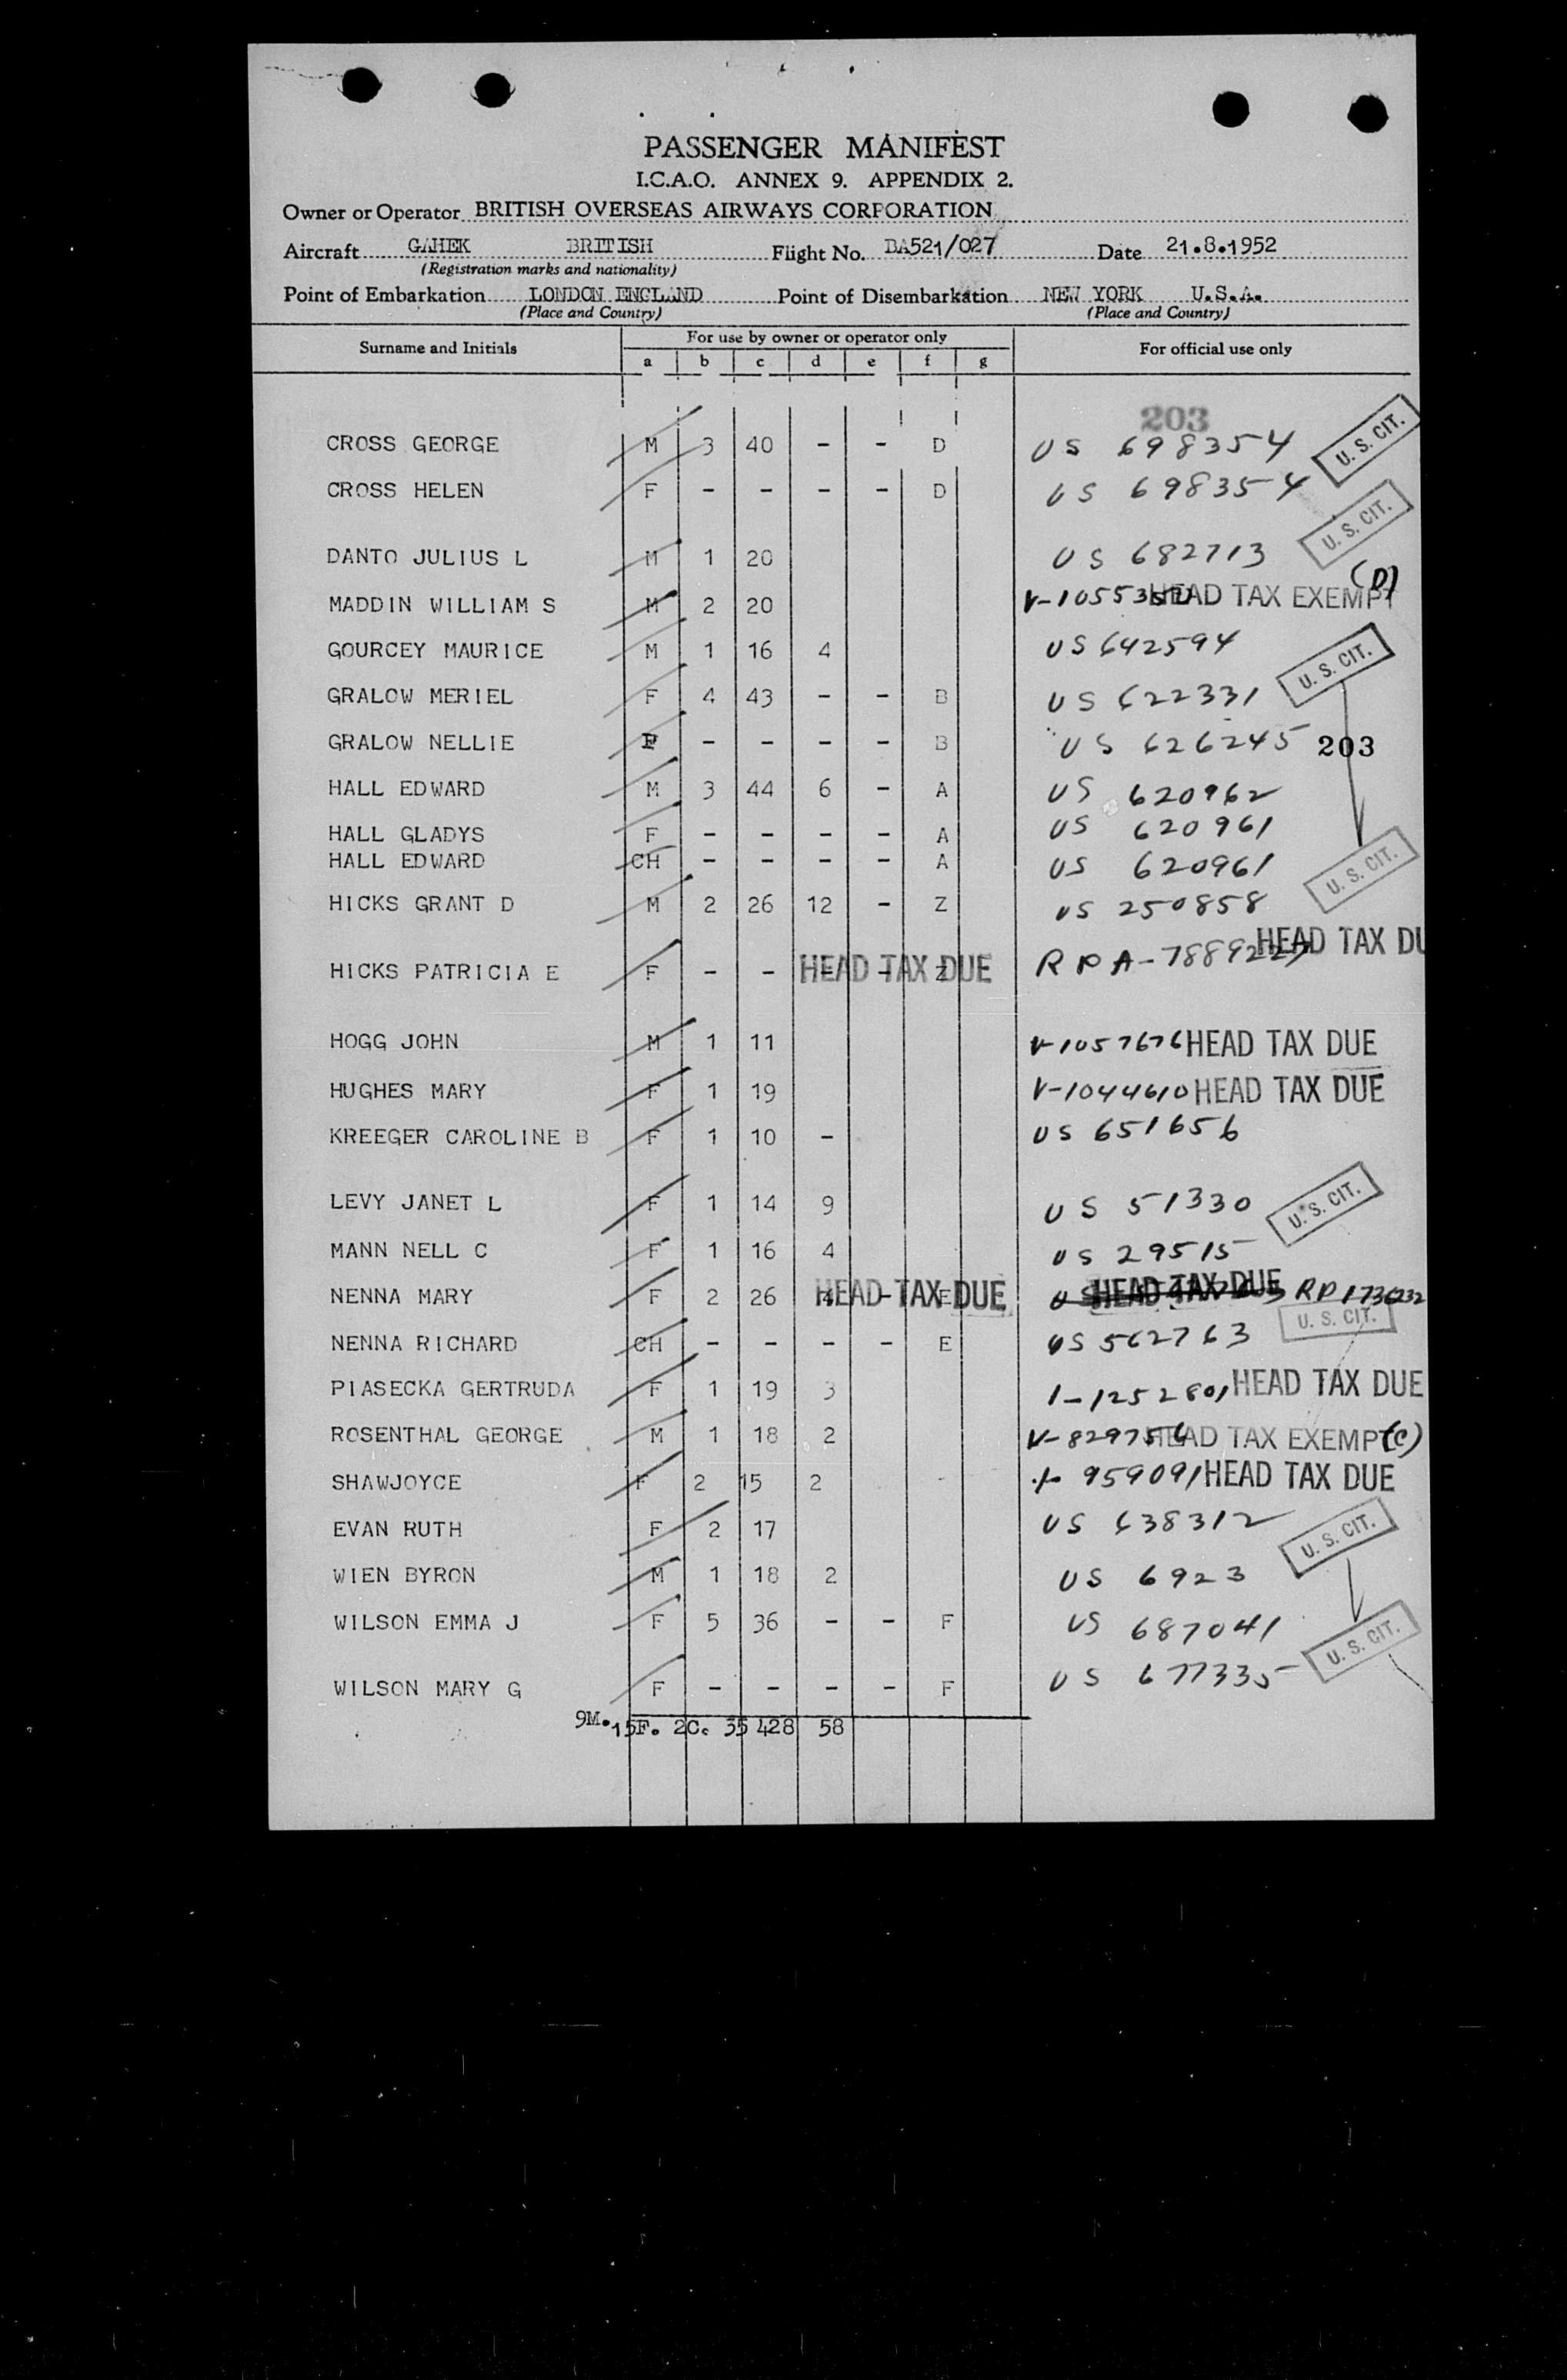 PASSENGER MANIFEST
I.C.A.O. ANNEX 9. APPENDIX 2.
Owner or Operator BRITISH OVERSEAS AIRWAYS CORPORATION
Aircraft GAHEK BRITISH Flight No. BA521/027 Date 21.8.1952
(Registration marks and nationality)
Point of Embarkation LONDON ENGLAND Point of Disembarkation NEW YORK U.S.A.
(Place and Country) (Place and Country)
Surname and Initials For use by owner or operator only For official use only
a b c d e f g
203
CROSS GEORGE M 3 40 - - D US 698354 U. S. CIT.
CROSS HELEN F - - - - D US 698354
U. S. CIT.
DANTO JULIUS L M 1 20 US 682713
MADDIN WILLIAM S M 2 20 HEAD TAX EXEMPT (D)
GOURCEY MAURICE M 1 16 4 US 642594
U. S. CIT.
GRALOW MERIEL F 4 43 - - B US 622331
GRALOW NELLIE F - - - - B US 626245 203
HALL EDWARD M 3 44 6 - A US 620962
HALL GLADYS F - - - - A US 620961
HALL EDWARD CH - - - - A US 620961 U. S. CIT.
HICKS GRANT D M 2 26 12 - Z US 250858
HICKS PATRICIA E F - - - - Z HEAD TAX DUE RPA-7889227 HEAD TAX DU
HOGG JOHN M 1 11 V-1057676 HEAD TAX DUE
HUGHES MARY F 1 19 V-1044610 HEAD TAX DUE
KREEGER CAROLINE B F 1 10 - US 651656
LEVY JANET L F 1 14 9 US 51330 U. S. CIT.
MANN NELL C F 1 16 4 US 29515
NENNA MARY F 2 26 4 - E HEAD TAX DUE HEAD TAX DUE RP 1736232
NENNA RICHARD CH - - - - E US 562763 U. S. CIT.
PIASECKA GERTRUDA F 1 19 3 1-1252801 HEAD TAX DUE
ROSENTHAL GEORGE M 1 18 2 V-829756 HEAD TAX EXEMPT (C)
SHAWJOYCE F 2 15 2 959091 HEAD TAX DUE
EVAN RUTH F 2 17 US 638312
U. S. CIT.
WIEN BYRON M 1 18 2 US 6923
WILSON EMMA J F 5 36 - - F US 687041
U. S. CIT.
WILSON MARY G F - - - - F US 677335
9M. 15F. 2C. 35 428 58